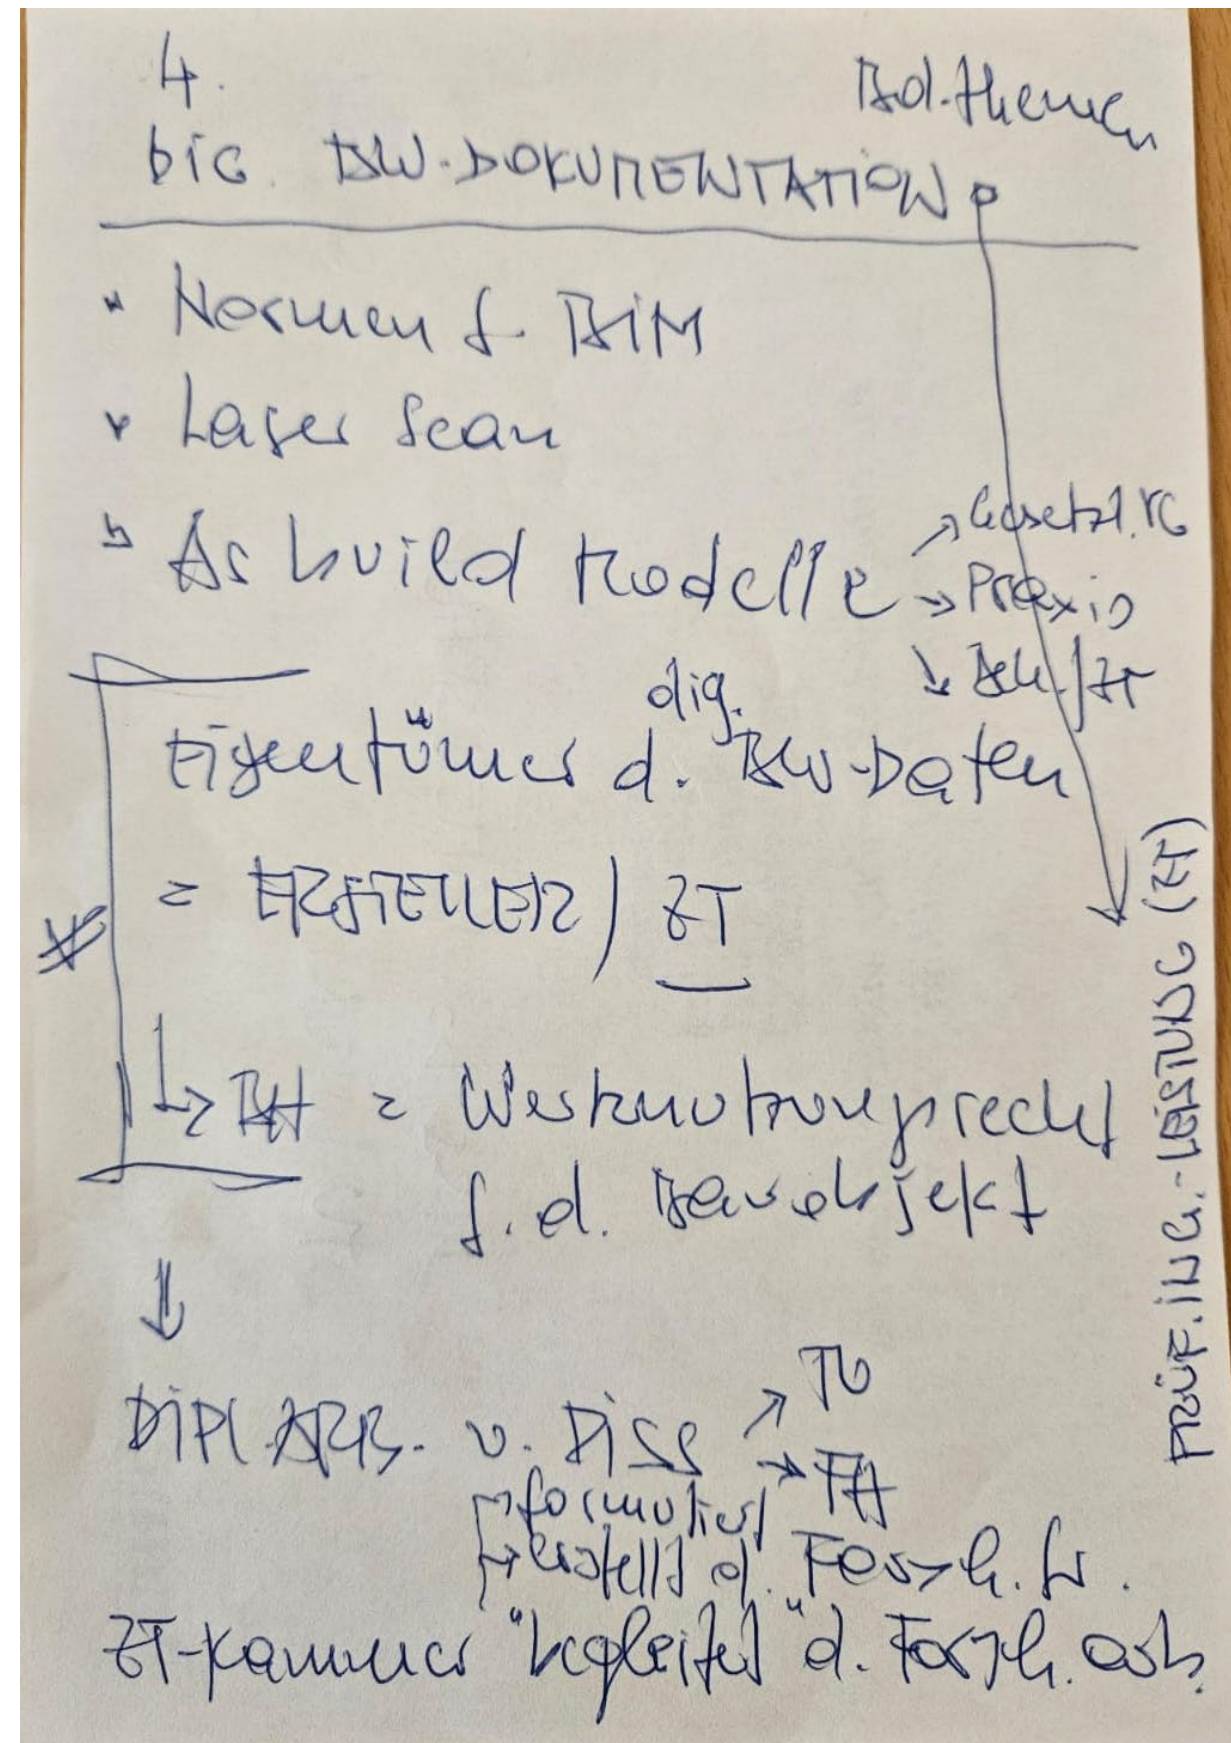 4.
Bd.themen
DIG. BW-DOKUMENTATION
Normen f. BIM
Laser Scan
As build Modelle
→ Gesetzl. VG
→ Praxis
→ BH/ZT
Eigentümer d. dig. BW-Daten
= ERSTELLER / ZT
→ BH = Werknutzungsrecht
f. d. Bauobjekt
DIPL.ARB. u. DISS
→ TU
→ FH
→ formuliert
→ erstellt d. Forsch. fr.
ZT-Kammer "begleitet" d. Forsch. arb.
PRÜF.ING.-LEISTUNG (ZT)